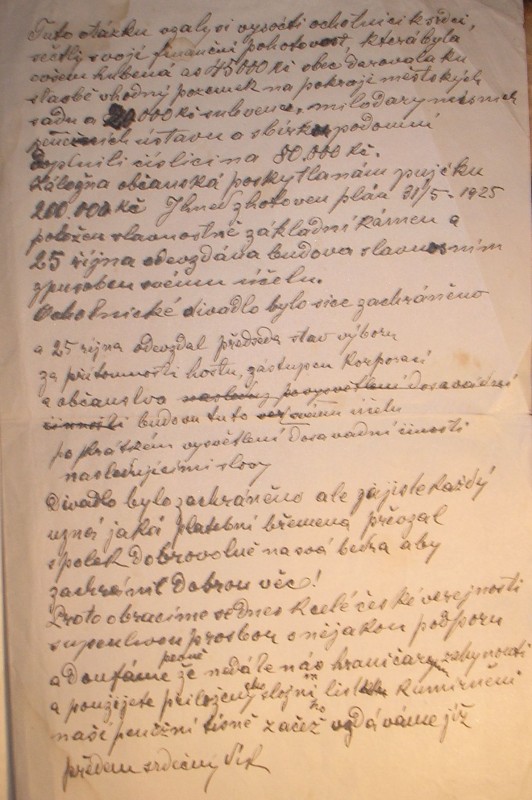 Tuto otázku vzaly si vysočtí ochotníci k srdci,
sečtli svoji finanční pohotovost, která byla
ovšem hubená as 45000 Kč obec darovala ku
stavbě vhodný pozemek na pokraji městských
sadů a 20.000 Kč subvence, milodary místních
peněžních ústavů a sbírkou podomní
doplnili číslici na 80.000 Kč.
Záložna občanská poskytla nám pujčku
200.000 Kč Ihned zhotoven plán 31/5-1925
položen slavnostně základní kámen a
25 října odevzdána budova slavnosním
zpusobem svému účelu.
Ochotnické divadlo bylo sice zachráněno
a 25 října odevzdal předseda stav výboru
za přítomnosti hostu, zástupcu korporací
a občanstva dosavadní
činnosti budovu tuto svému účelu
po krátkém vysvětlení dosavadní činosti
nasledujícimi slovy
Divadlo bylo zachráněno ale zajiste každý
uzná jaká platební břemena převzal
spolek dobrovolně na svá bedra aby
zachránil dobrou věc!
Proto obracíme se dnes k celé české veřejnosti
s upěnlivou prosbou o nějakou podporu
pevně
a doufáme že nedáte nás hraničáry zahynouti
a použijete přiloženého složního lístku k umírnění
naší peněžní tísně začež vzdáváme již
předem srdečný Dík